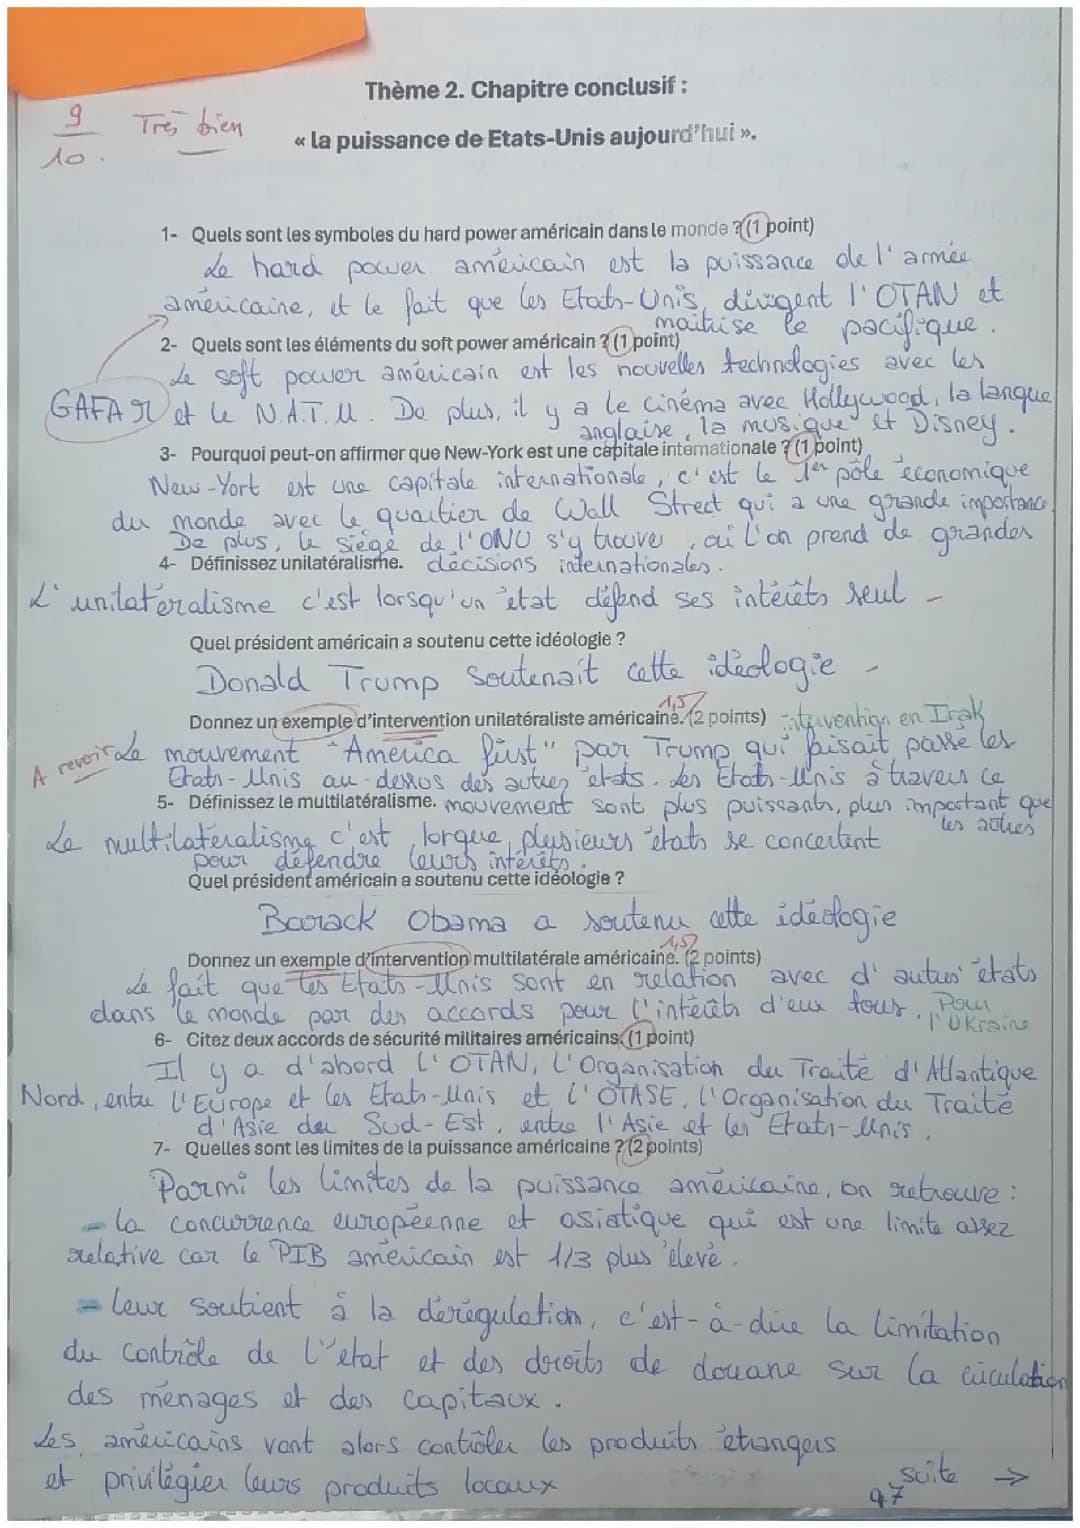 Thème 2. Chapitre conclusif :
9
10.
Très bien
« la puissance de Etats-Unis aujourd'hui ».
1- Quels sont les symboles du hard power américain dans le monde ? (1 point)
Le hard power américain est la puissance de l'armée
américaine, et le fait que les Etats-Unis dirigent l'OTAN et
maitrise le pacifique.
2- Quels sont les éléments du soft power américain ? (1 point)
Le soft power américain est les nouvelles technologies avec les
GAFAM et le N.A.T.U. De plus, il y a le cinéma avec Hollywood, la langue
anglaise, la musique et Disney.
3- Pourquoi peut-on affirmer que New-York est une capitale internationale ? (1 point)
New-Yort est une capitale internationale, c'est le 1er pôle économique
du monde avec le quartier de Wall Street qui a une grande importance.
De plus, le siège de l'ONU s'y trouve, où l'on prend de grandes
4- Définissez unilatéralisme. décisions internationales.
L'unilatéralisme c'est lorsqu'un état défend ses intérêts seul -
Quel président américain a soutenu cette idéologie ?
Donald Trump soutenait cette idéologie -
1,5
Donnez un exemple d'intervention unilatéraliste américaine. (2 points) intervention en Irak
A revoir Le mouvement "America first" par Trump qui faisait passé les
Etats-Unis au-dessus des autres états. Les Etats-Unis à travers ce
5- Définissez le multilatéralisme. mouvement sont plus puissants, plus important que
les autres
Le multilatéralisme c'est lorque plusieurs états se concertent
pour défendre leurs intérêts.
Quel président américain a soutenu cette idéologie ?
Barack Obama a soutenu cette idéologie
1,5
Donnez un exemple d'intervention multilatérale américaine. (2 points)
Le fait que les Etats-Unis sont en relation avec d'autres états
dans le monde par des accords pour l'intérêts d'eux tous. Pour
l'Ukraine
6- Citez deux accords de sécurité militaires américains. (1 point)
Il y a d'abord l'OTAN, l'Organisation du Traité d'Atlantique
Nord, entre l'Europe et les Etats-Unis et l'OTASE, l'Organisation du Traité
d'Asie du Sud-Est, entre l'Asie et les Etats-Unis.
7- Quelles sont les limites de la puissance américaine ? (2 points)
Parmi les limites de la puissance américaine, on retrouve :
- la concurrence européenne et asiatique qui est une limite assez
relative car le PIB américain est 1/3 plus élevé.
- leur soutient à la dérégulation, c'est-à-dire la limitation
du contrôle de l'état et des droits de douane sur la circulation
des ménages et des capitaux.
Les américains vont alors contrôler les produits étrangers
et privilégier leurs produits locaux
suite →